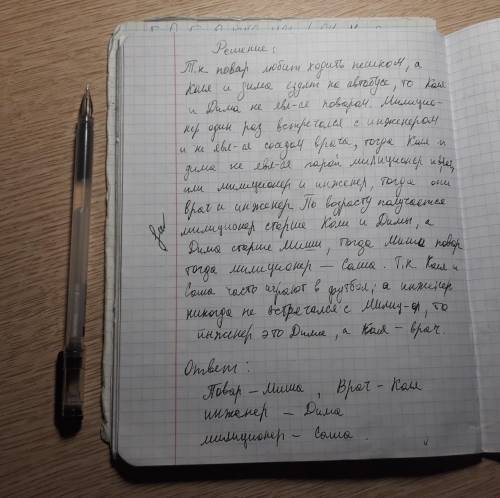 Решение:
Т.к повар любит ходить пешком, а
Коля и Дима ездят на автобусе, то Коля
и Дима не явл-ся поваром. Милицио-
нер один раз встречался с инженером
и не явл-ся соседом врача, тогда Коля и
Дима не явл-ся парой милиционер и врач,
или милиционер и инженер, тогда они
врач и инженер. По возрасту получается
милиционер старше Коли и Димы, а
Дима старше Миши, тогда Миша повар
тогда милиционер — Саша. Т.к Коля и
Саша часто играют в футбол, а инженер
никогда не встречался с милиц-ом, то
инженер это Дима, а Коля — врач.
Ответ:
Повар — Миша, Врач — Коля
инженер — Дима
милиционер — Саша.